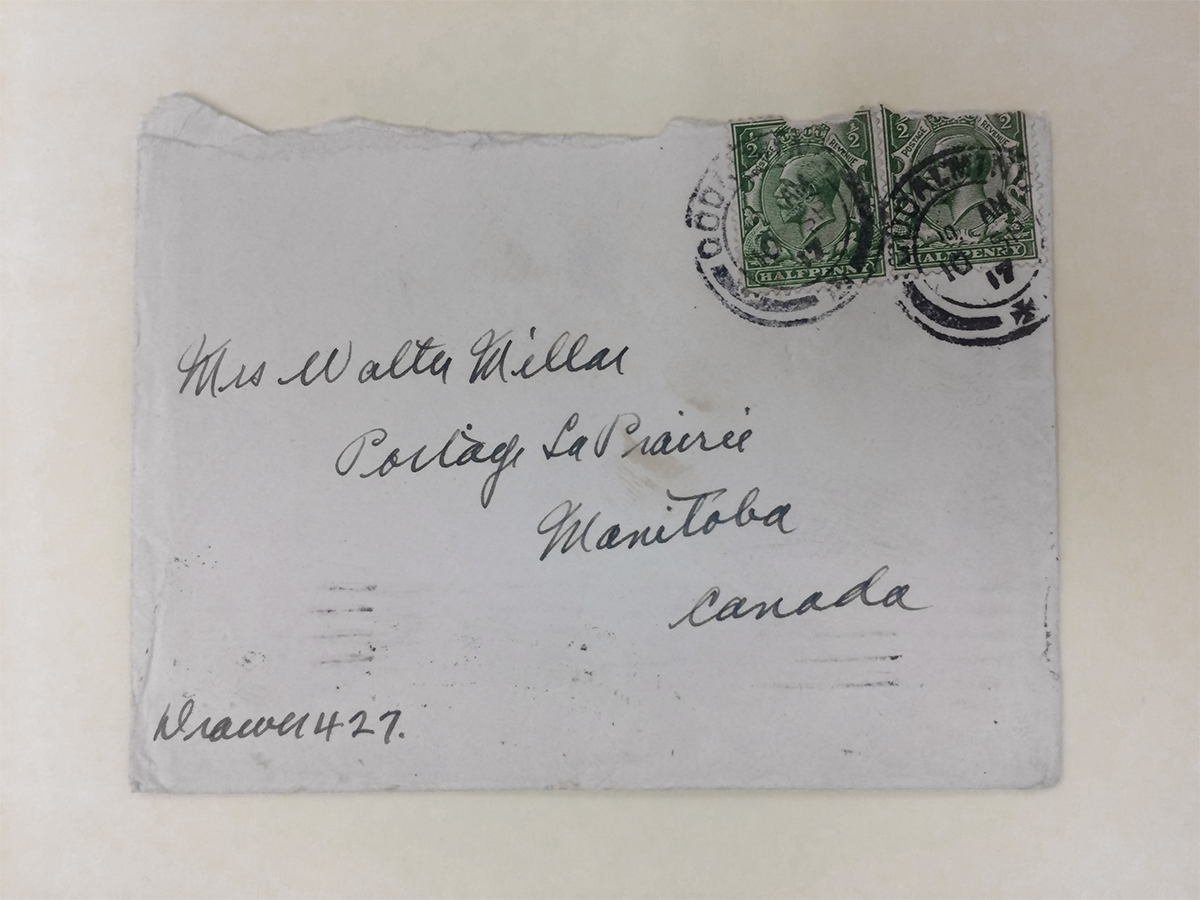 ½ ½ ½ ½
POSTAGE REVENUE POSTAGE REVENUE
HALFPENNY HALFPENNY
GODALMING
AM AM
10 10
17 17
Mrs Walter Millar
Portage La Prairie
Manitoba
Canada
Drawer 427.